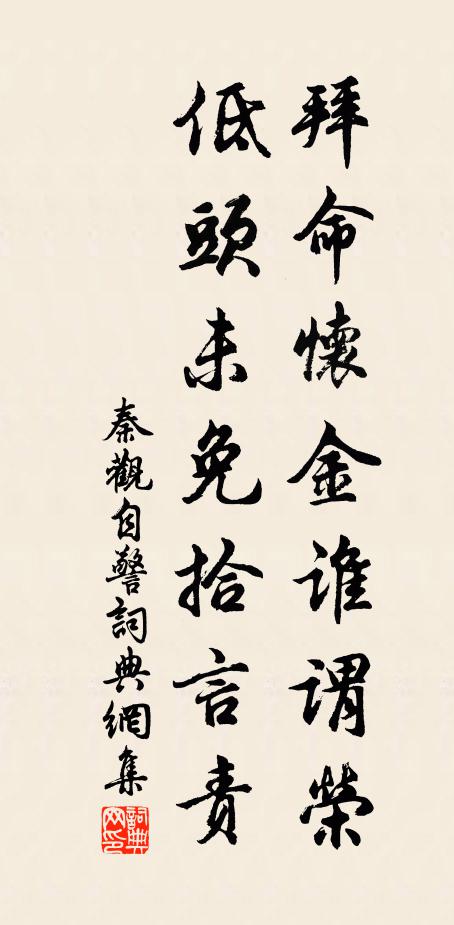 拜命懷金誰謂榮
低頭未免拾言責
秦觀自警詞典網集
詞典網印